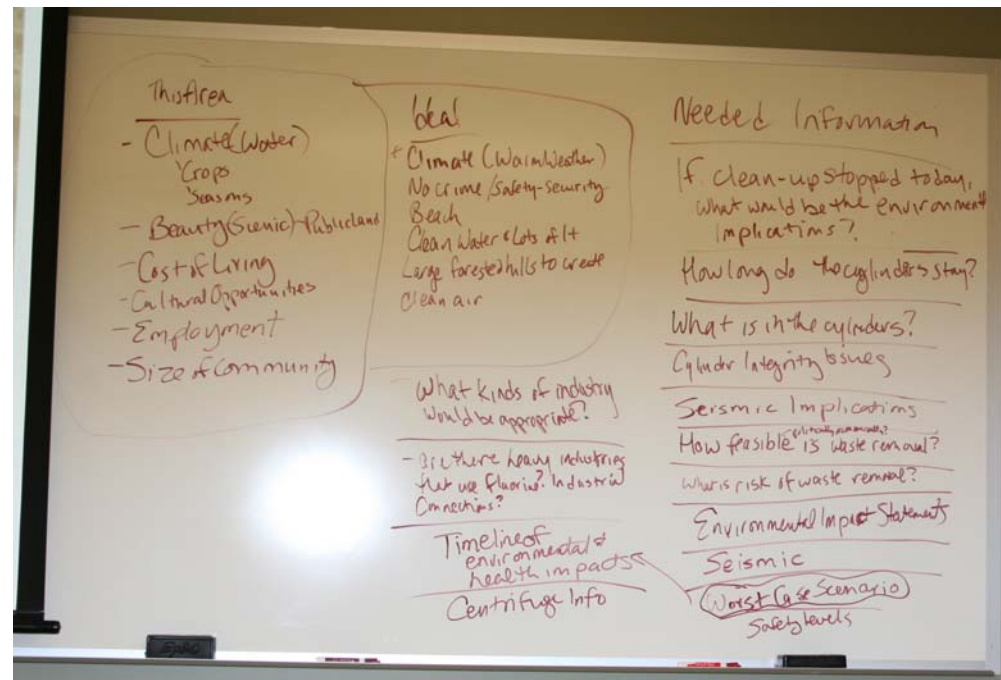 This Area
- Climate (Water)
Crops
Seasons
- Beauty (Scenic) - Public land
- Cost of Living
- Cultural Opportunities
- Employment
- Size of Community
Ideal
Climate (Warm Weather)
No crime / Safety-security
Beach
Clean Water & Lots of It
Large forested hills to create
Clean air
What kinds of industry
would be appropriate?
- Are there heavy industries
that use fluorine? Industrial
Connections?
Timeline of
environmental &
health impacts
Centrifuge Info
Needed Information
If clean-up stopped today,
what would be the environment
implications?
How long do the cyglinders stay?
What is in the cylinders?
Cylinder Integrity Issues
Seismic Implications
How feasible is waste removal?
What is risk of waste removal?
Environmental Impact Statements
Seismic
Worst Case Scenario
Safety levels
EXPO